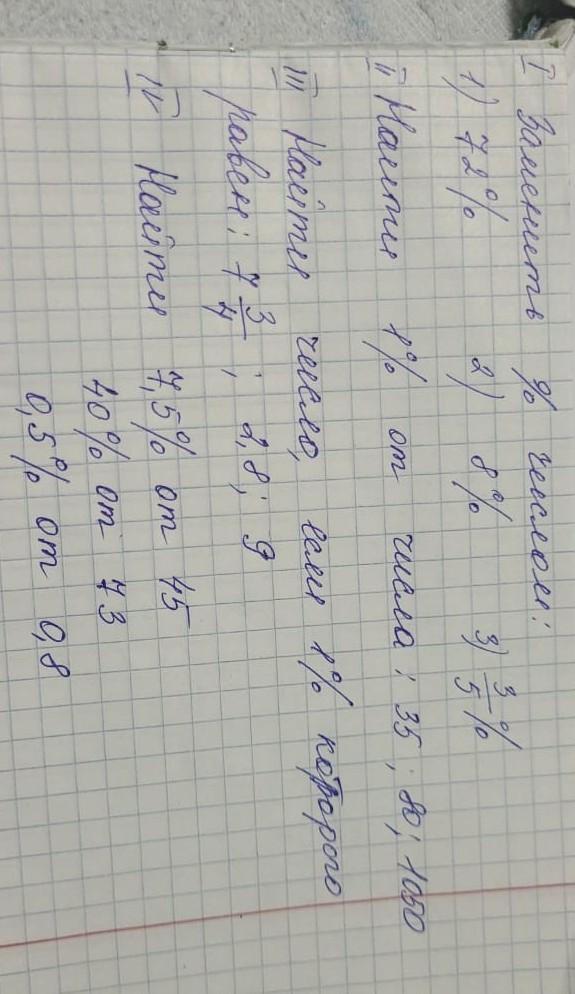 I Заменить % числом:
1) 72% 2) 8% 3) 3/5 %
II Найти 1% от числа: 35; 80; 1050
III Найти число, если 1% которого
равен: 7 3/4; 2,8; 9
IV Найти 7,5% от 45
40% от 73
0,5% от 0,8